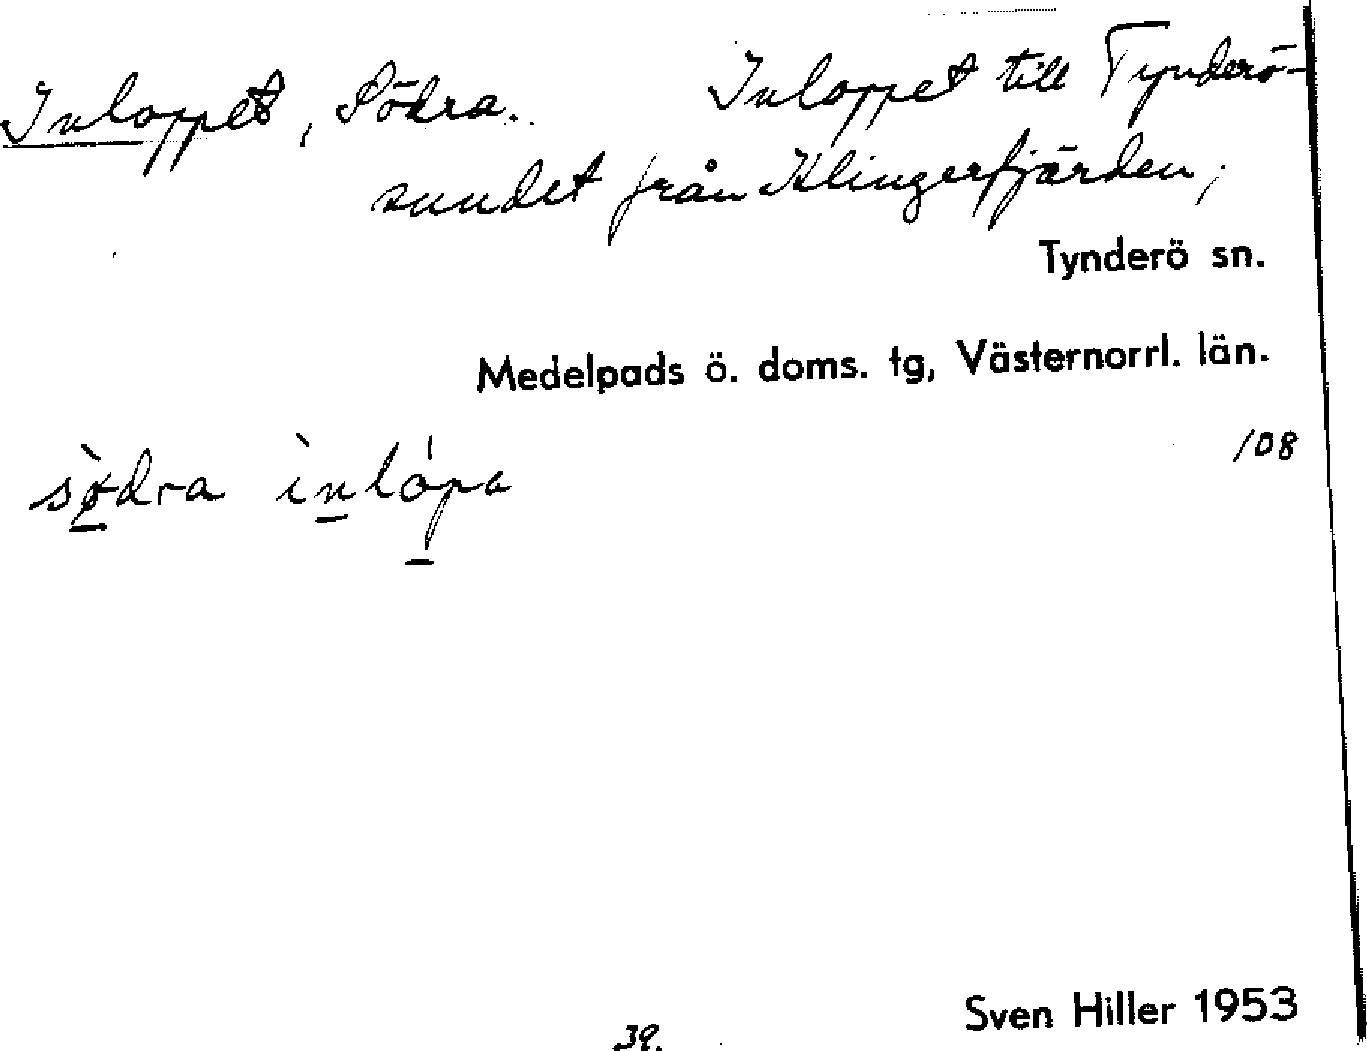 Inloppet, Södra. Inloppet till Tynderö-
sundet från Klingerfjärden,
Tynderö sn.
Medelpads ö. doms. tg, Västernorrl. län.
108
sø̀dra ìnlópa
Sven Hiller 1953
39.